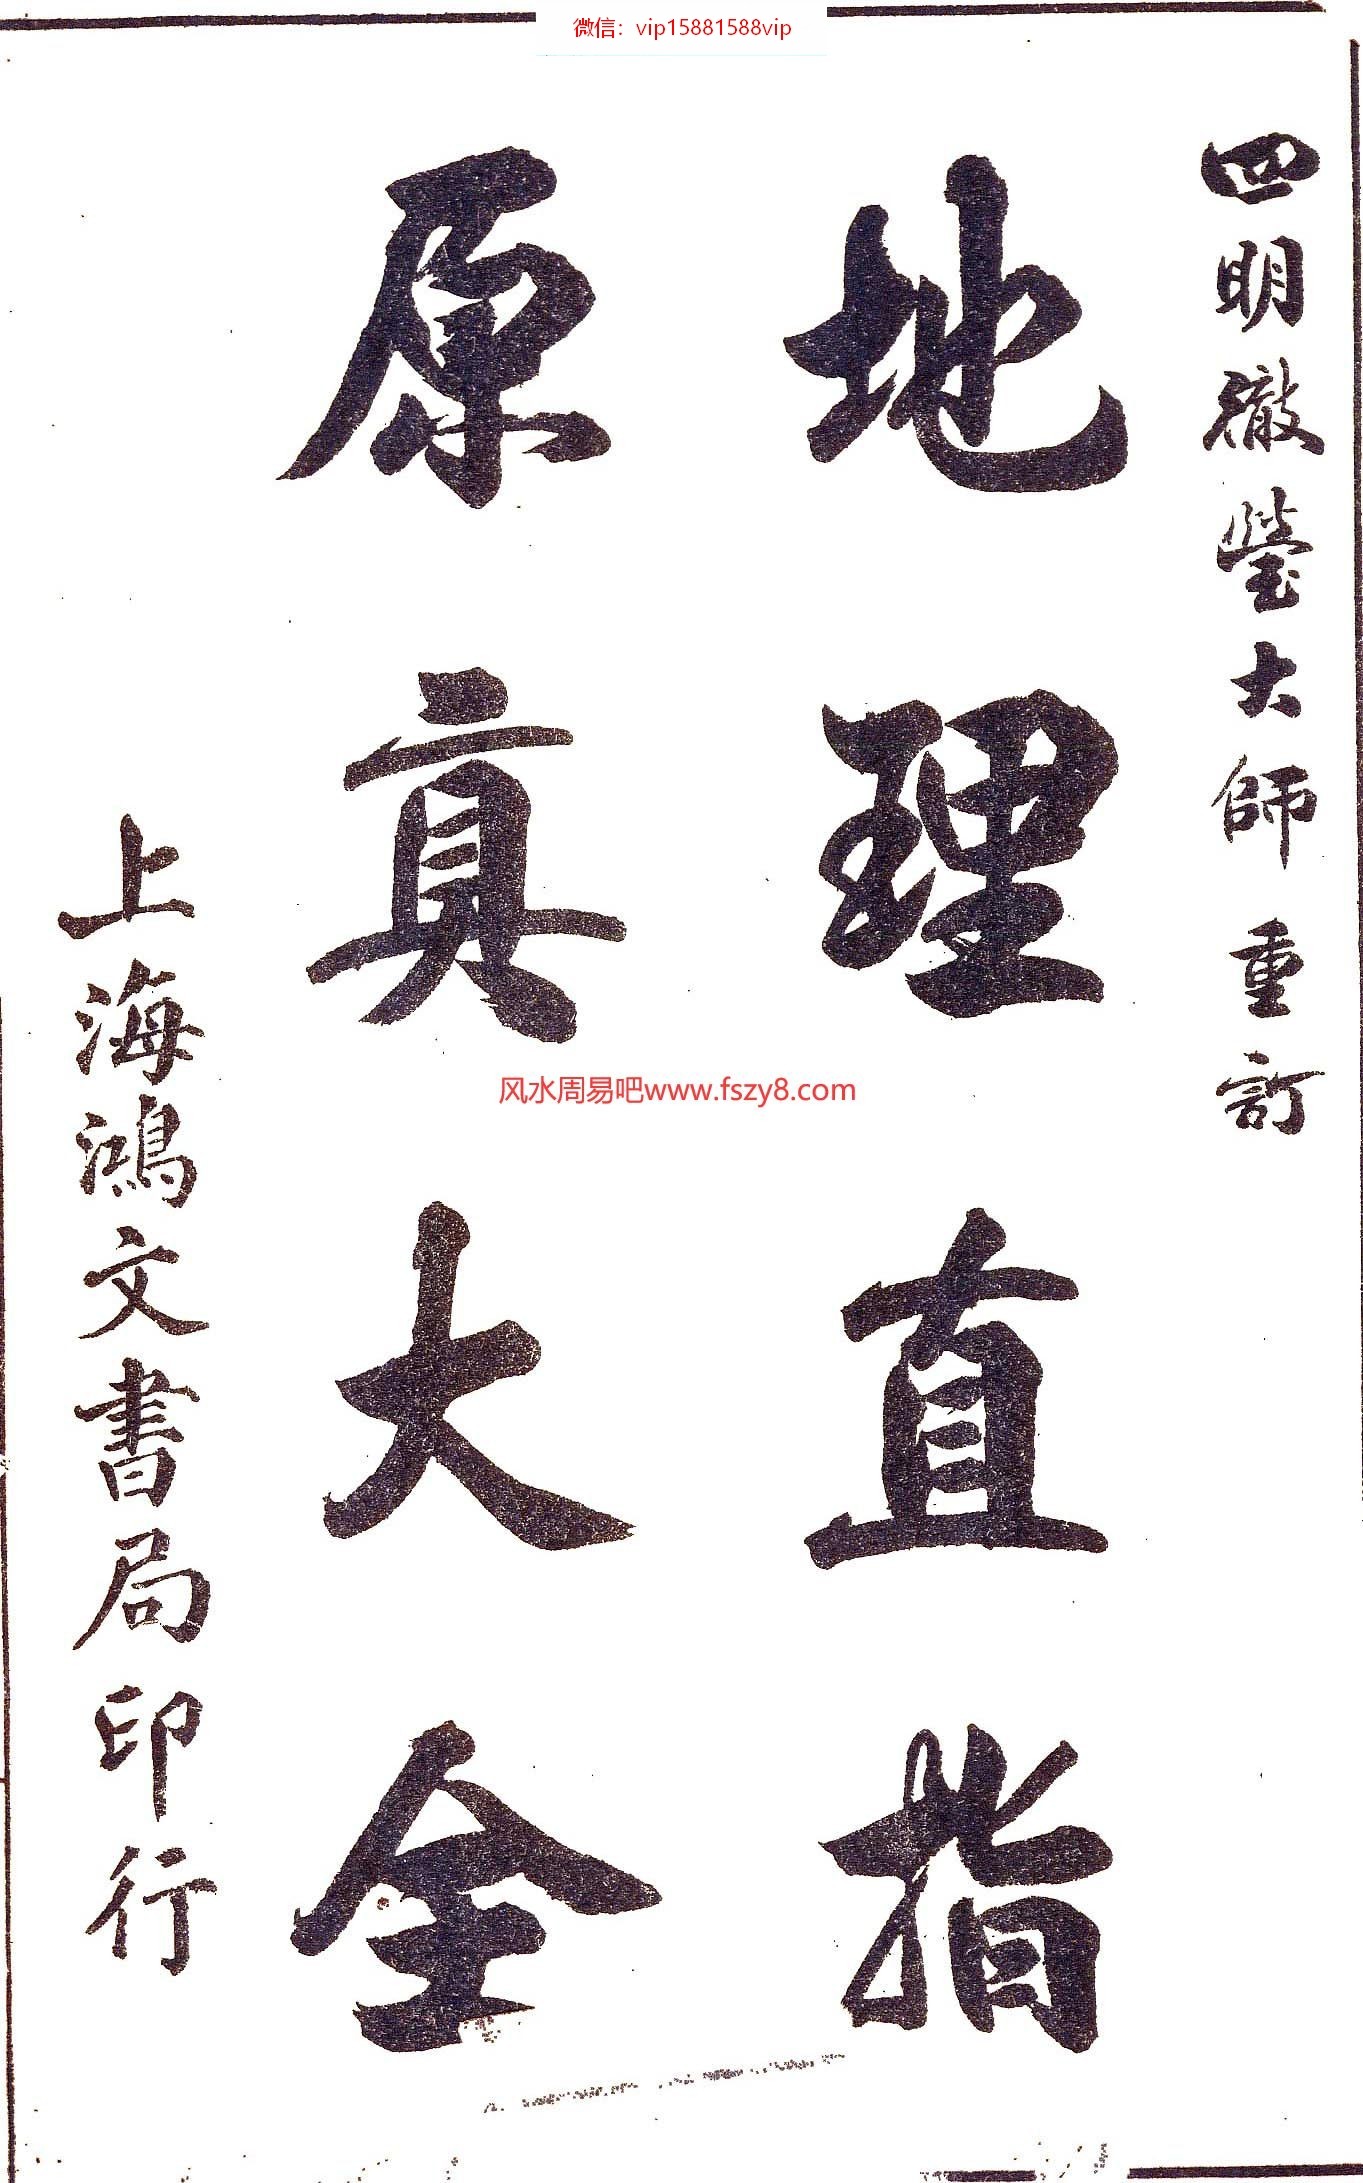 微信：vip15881588vip
四明徹瑩大師重訂
地理直指
原真大全
上海鴻文書局印行
风水周易吧www.fszy8.com